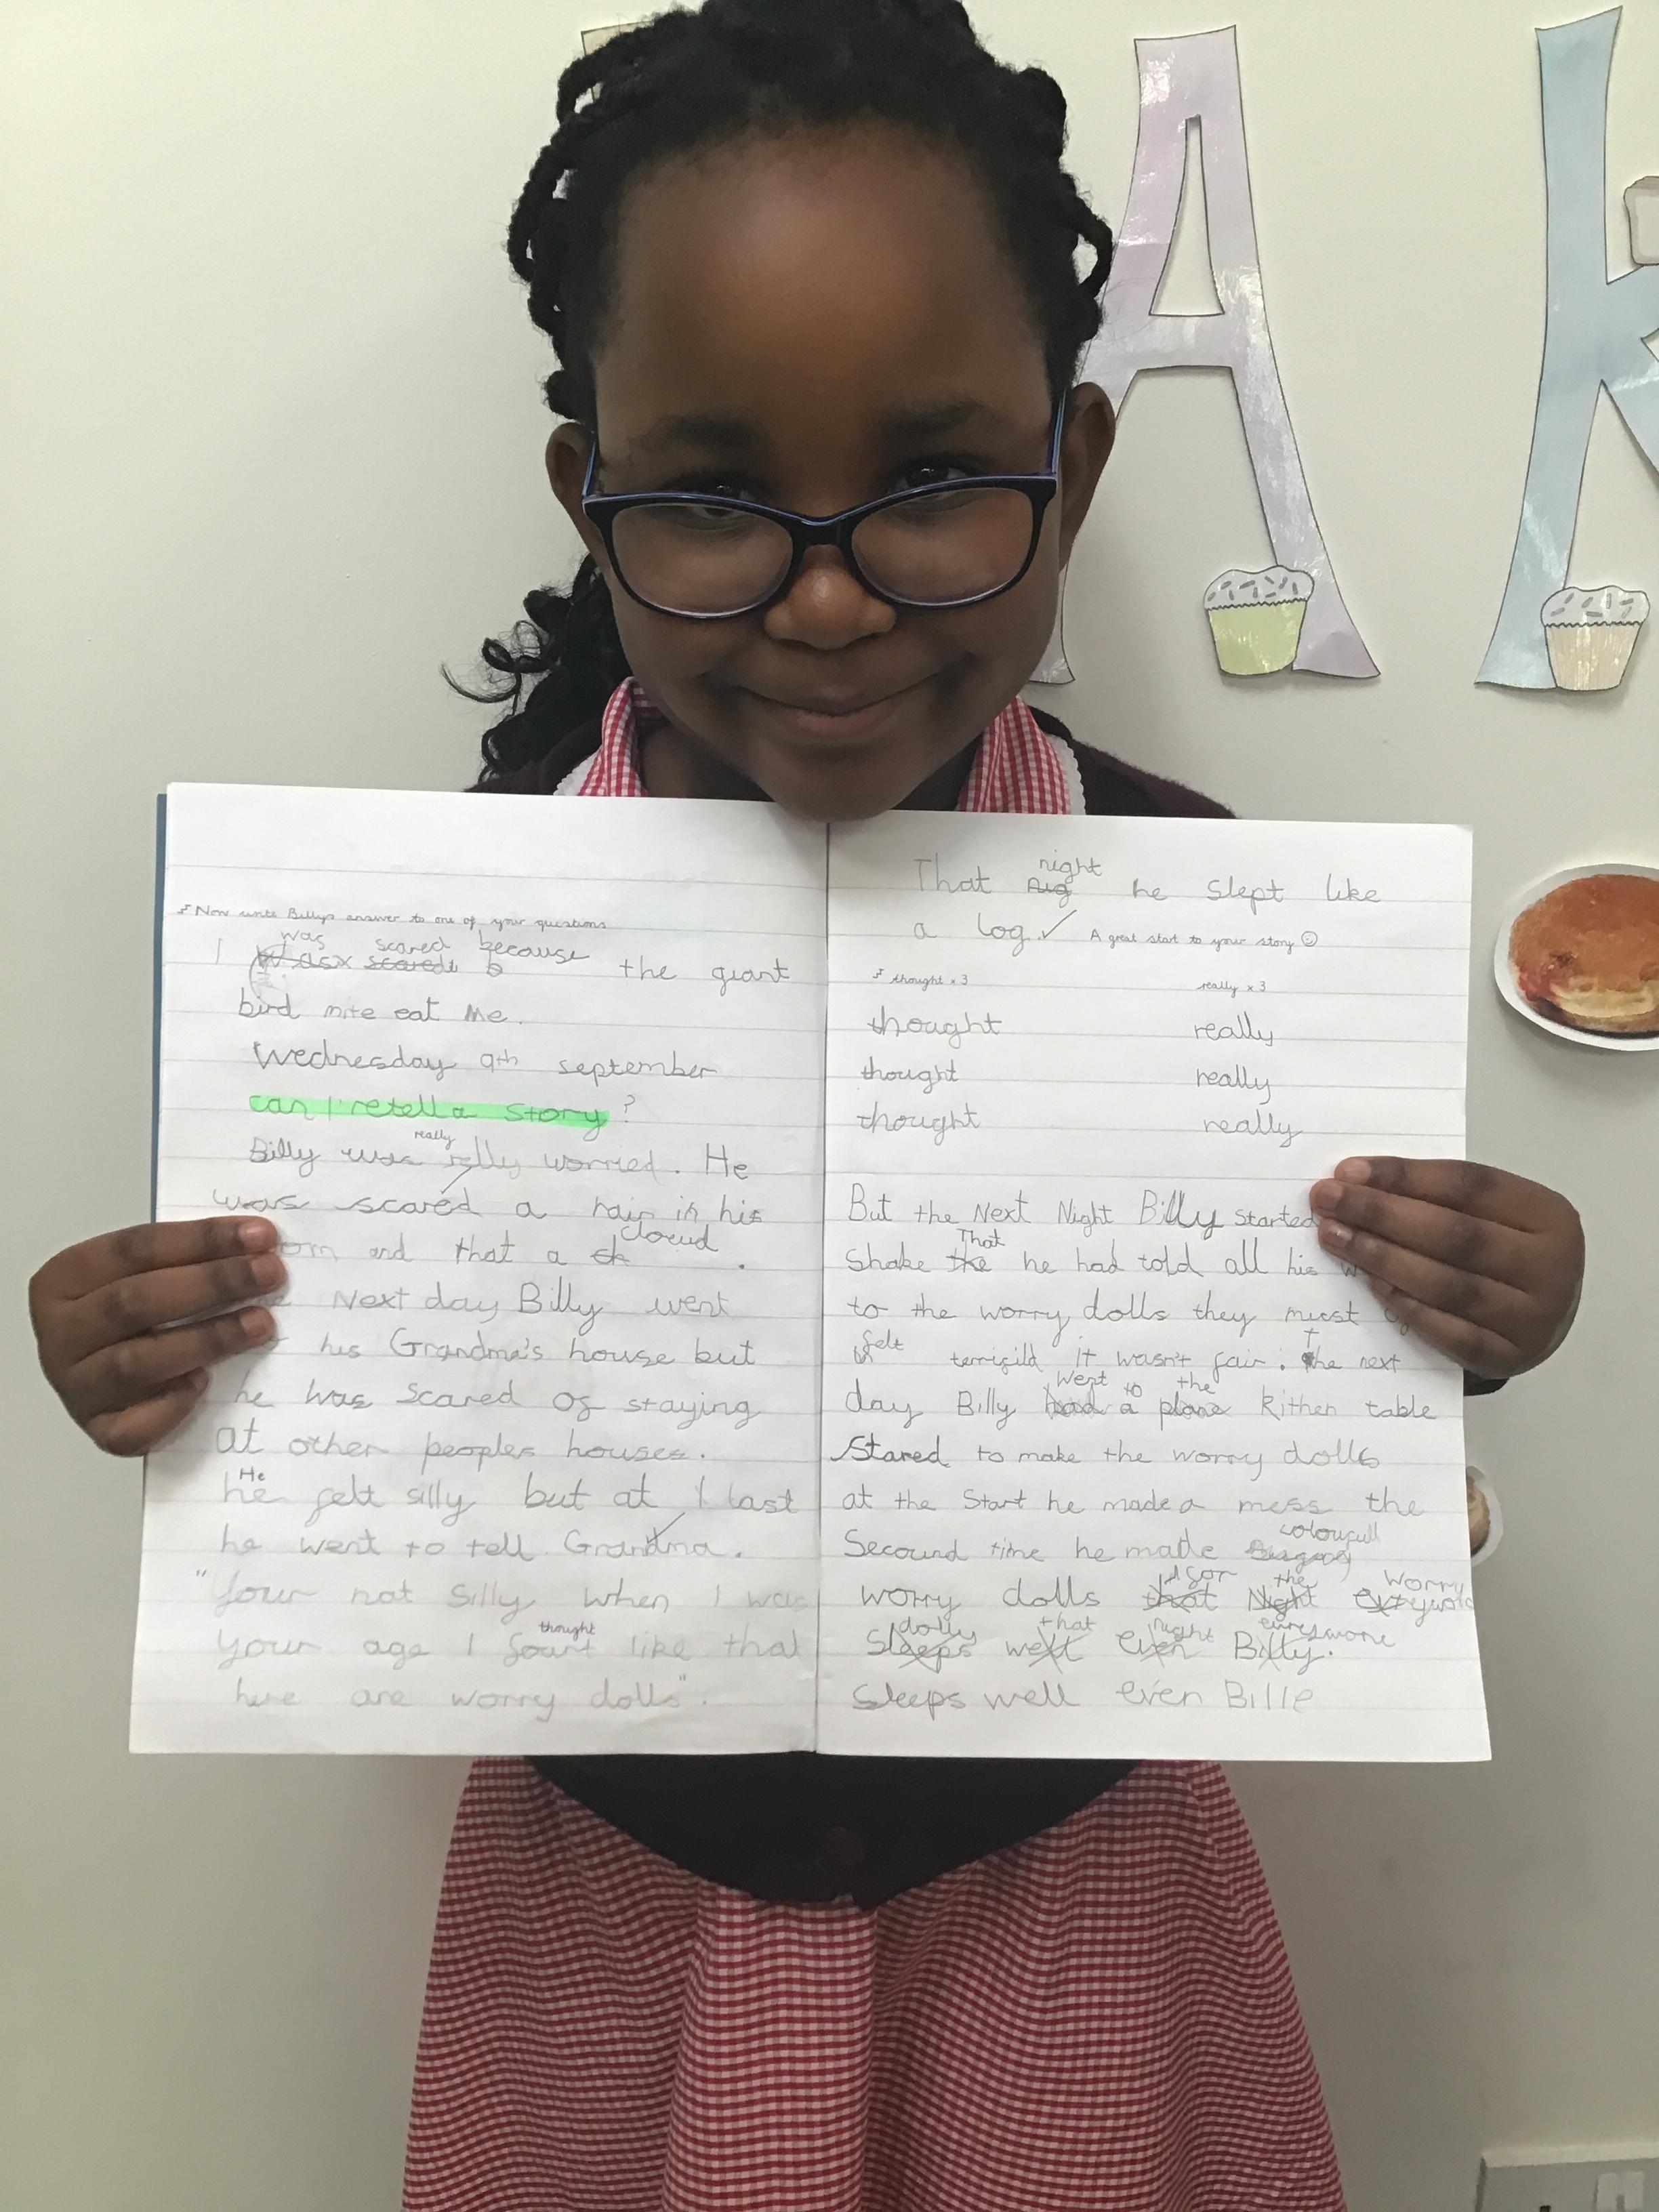 A K
Now write Billy's answer to one of your questions
was scared because
I the giant
bird mite eat Me.
Wednesday 9th september
can I retell a story?
really
Billy was relly worried. He
was scared a rain in his
om and that a cloud .
Next day Billy went
his Grandma's house but
he was scared of staying
at other peoples houses.
He
he felt silly but at last
he went to tell Grandma.
"Your not silly when I was
thought
your age I fourt like that
here are worry dolls".
night
That he slept like
a log. A great start to your story
thought x 3 really x 3
thought really
thought really
thought really
But the Next Night Billy started
That
shake the he had told all his w
to the worry dolls they must
felt
terrifild it wasn't fair. The next
went to the
day Billy had a plane kithen table
Stared to make the worry dolls
at the Start he made a mess the
colourfull
Secound time he made
for the worry
worry dolls that Night
dollys that night
Sleeps well even Billy.
Sleeps well even Bille